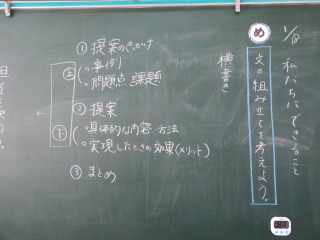 1/8 私たちにできること
め
文の組み立てを考えよう。
横書き
① 提案のきっかけ
上
・事例
・問題点 課題
② 提案
下
・具体的な内容・方法
・実現したときの効果(メリット)
③ まとめ